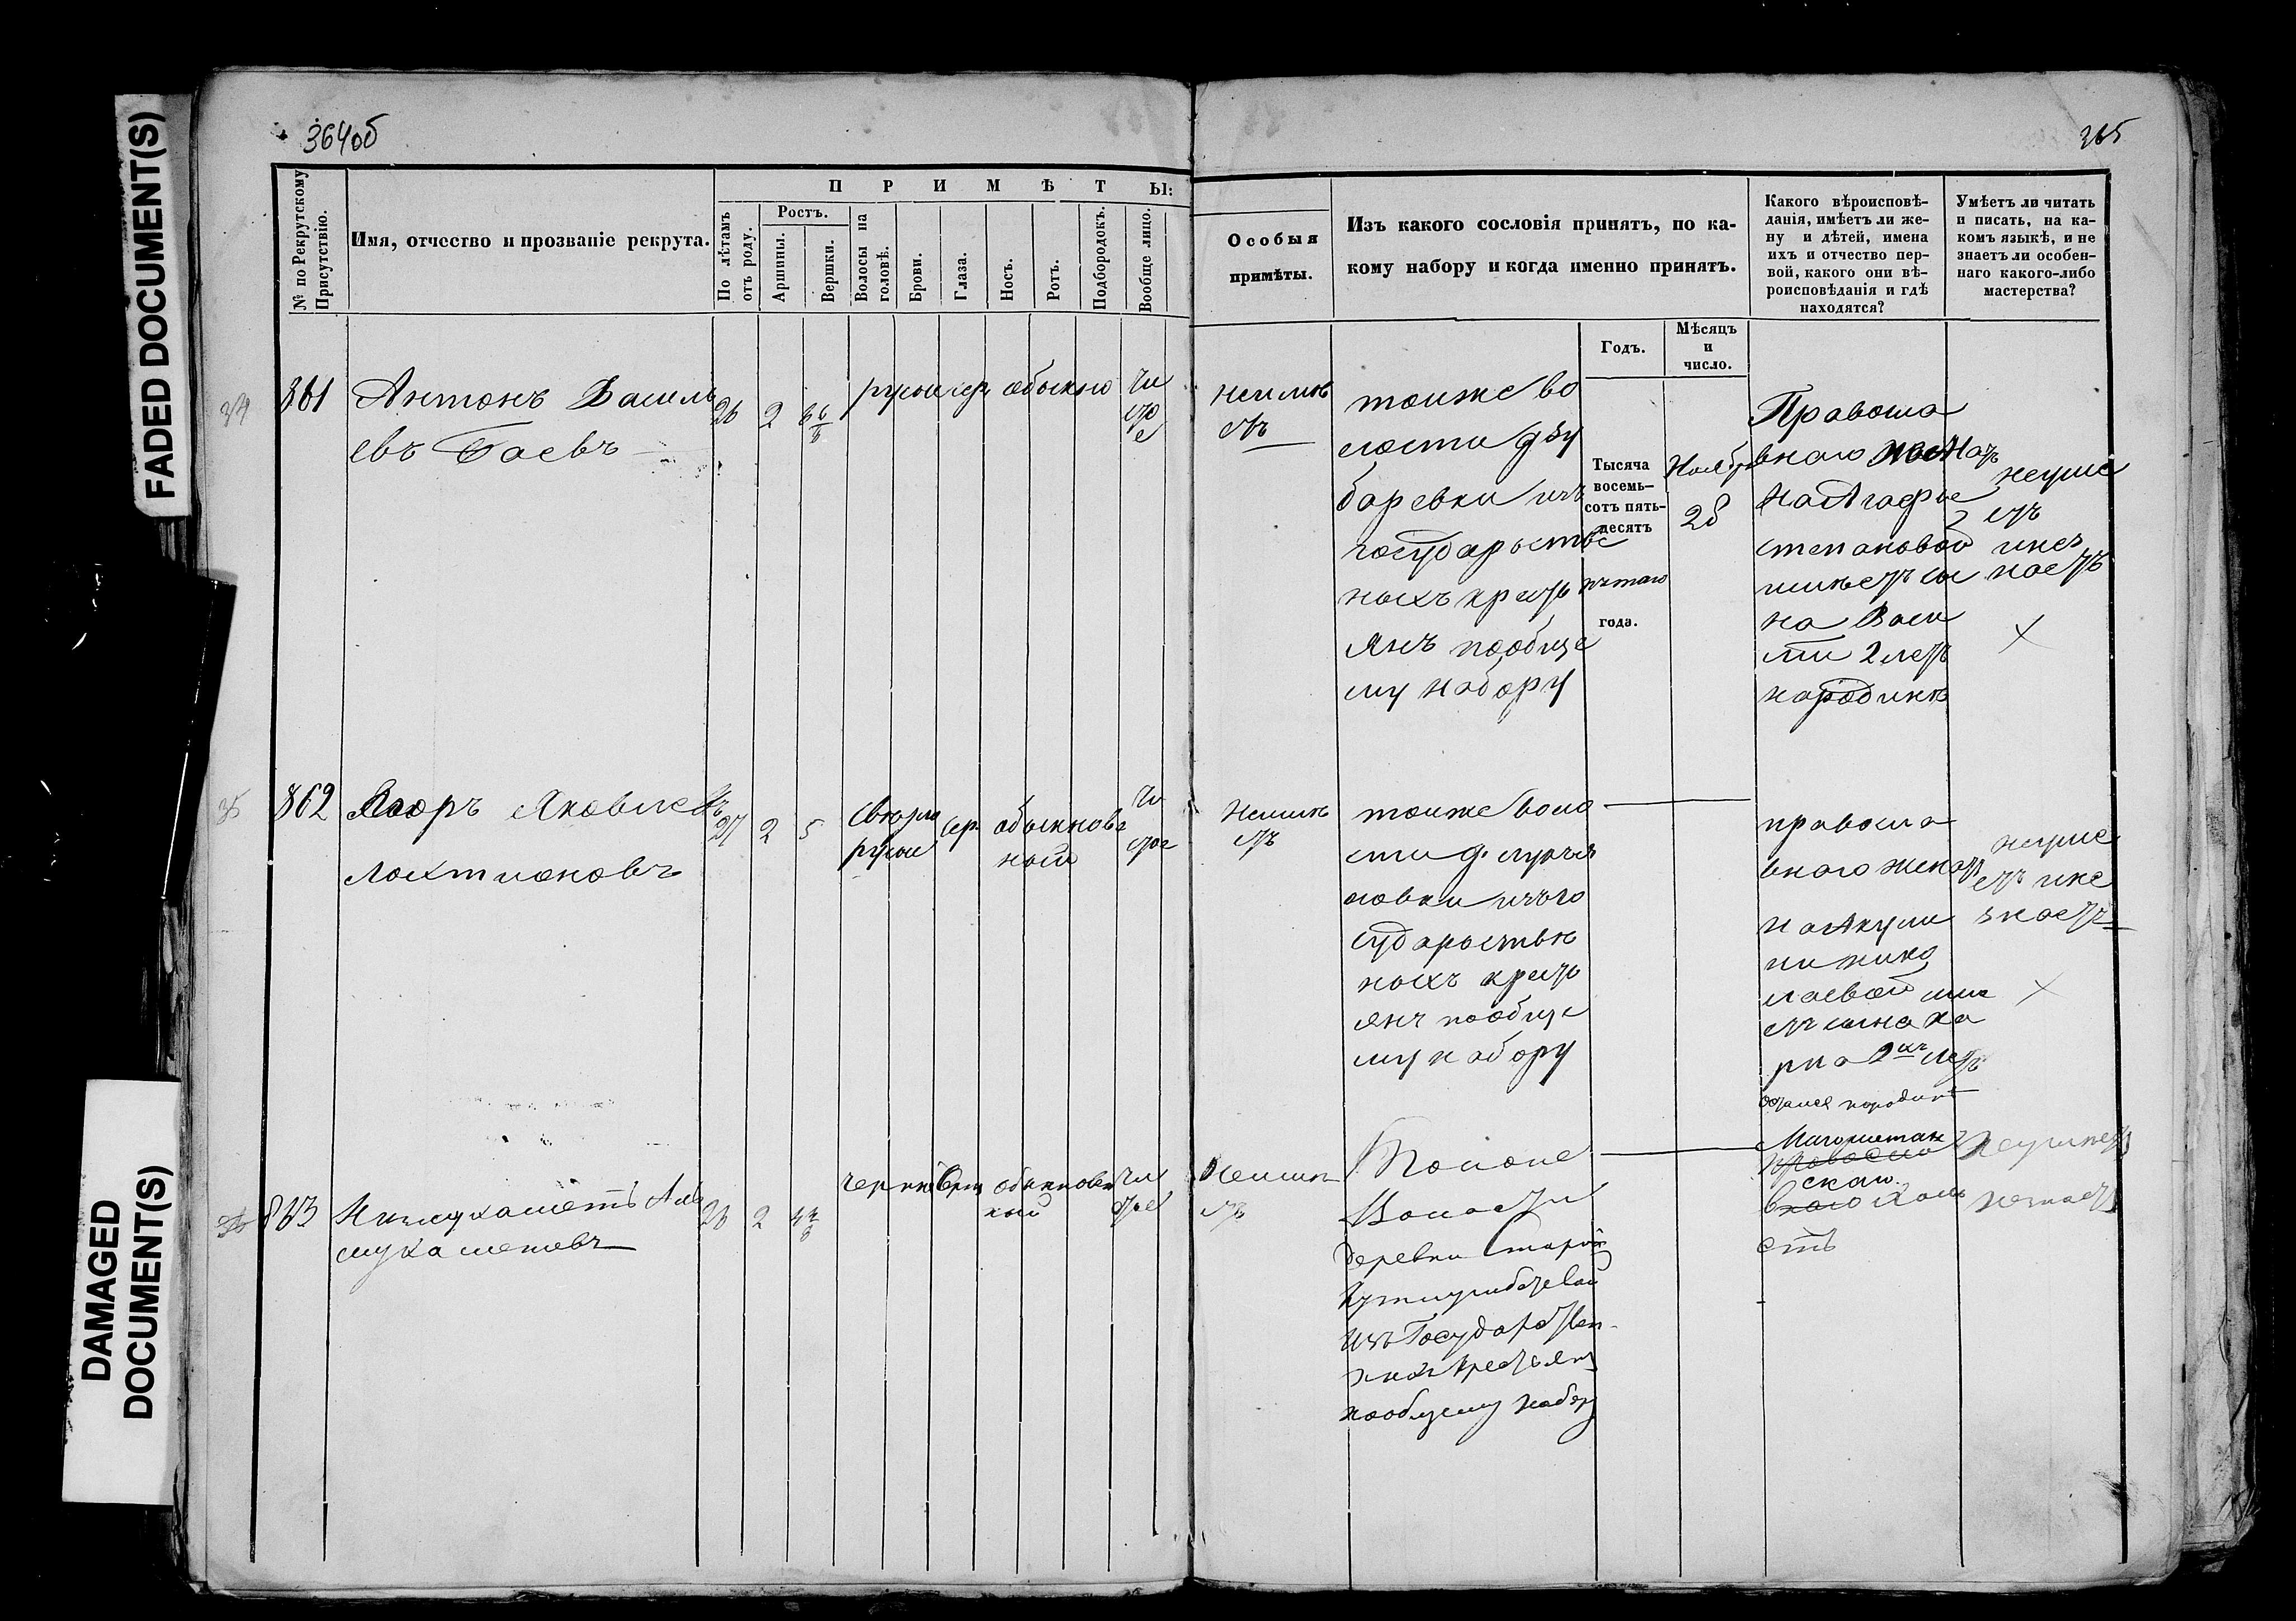 FADED DOCUMENT(S)
DAMAGED
DOCUMENT(S)
364об
365
№ по Рекрутскому
Присутствію.
Имя, отчество и прозваніе рекрута.
ПРИМѢТЫ:
По лѣтамъ
отъ роду.
Ростъ.
Аршины.
Вершки.
Волосы на
головѣ.
Брови.
Глаза.
Носъ.
Ротъ.
Подбородокъ.
Вообще лицо.
Особыя
примѣты.
Изъ какого сословія принятъ, по ка-
кому набору и когда именно принятъ.
Годъ.
Мѣсяцъ
и
число.
Какого вѣроисповѣ-
данія, имѣетъ ли же-
ну и дѣтей, имена
ихъ и отчество пер-
вой, какого они вѣ-
роисповѣданія и гдѣ
находятся?
Умѣетъ ли читать
и писать, на ка-
комъ языкѣ, и не
знаетъ ли особен-
наго какого-либо
мастерства?
34
861
Антонъ Василь
евъ Баевъ
26
2
русые
сер
обыкно
чи
сто
е
неимѣ
етъ
тойже во
лости
баревки изъ
государстве
ныхъ крестъ
янъ пообще
му набору
Тысяча
восемь-
сотъ пять-
десятъ
пятаго
года.
Ноябр
28
Правосла
внаго
на Агафье
степановой
имѣетъ сы
на Васи
лія 2 летъ
народинѣ
неуме
етъ
инез
наетъ
35
862
Яковле
въ
Локтионовъ
27
2
5
светло
русые
сер
обыкнове
ной
чи
стое
неимѣ
етъ
тойже воло
сти д.
новки изъго
сударствен
ныхъ кресть
янъ пообще
му набору
правосла
внаго женатъ
на Акули
ни Нико
лаевой име
етъ сына
2хъ летъ
народинѣ
неуме
етъ ине
знаетъ
36
863
мухаметевъ
26
2
черные
обыкновен
ной
чи
стое
неимѣ
етъ
Волости
деревни Старой
изъ Государствен-
ныхъ крестьянъ
пообщему набору
Магометан
правосла
скаго
внаго холо
стъ
неумеетъ
незнаетъ